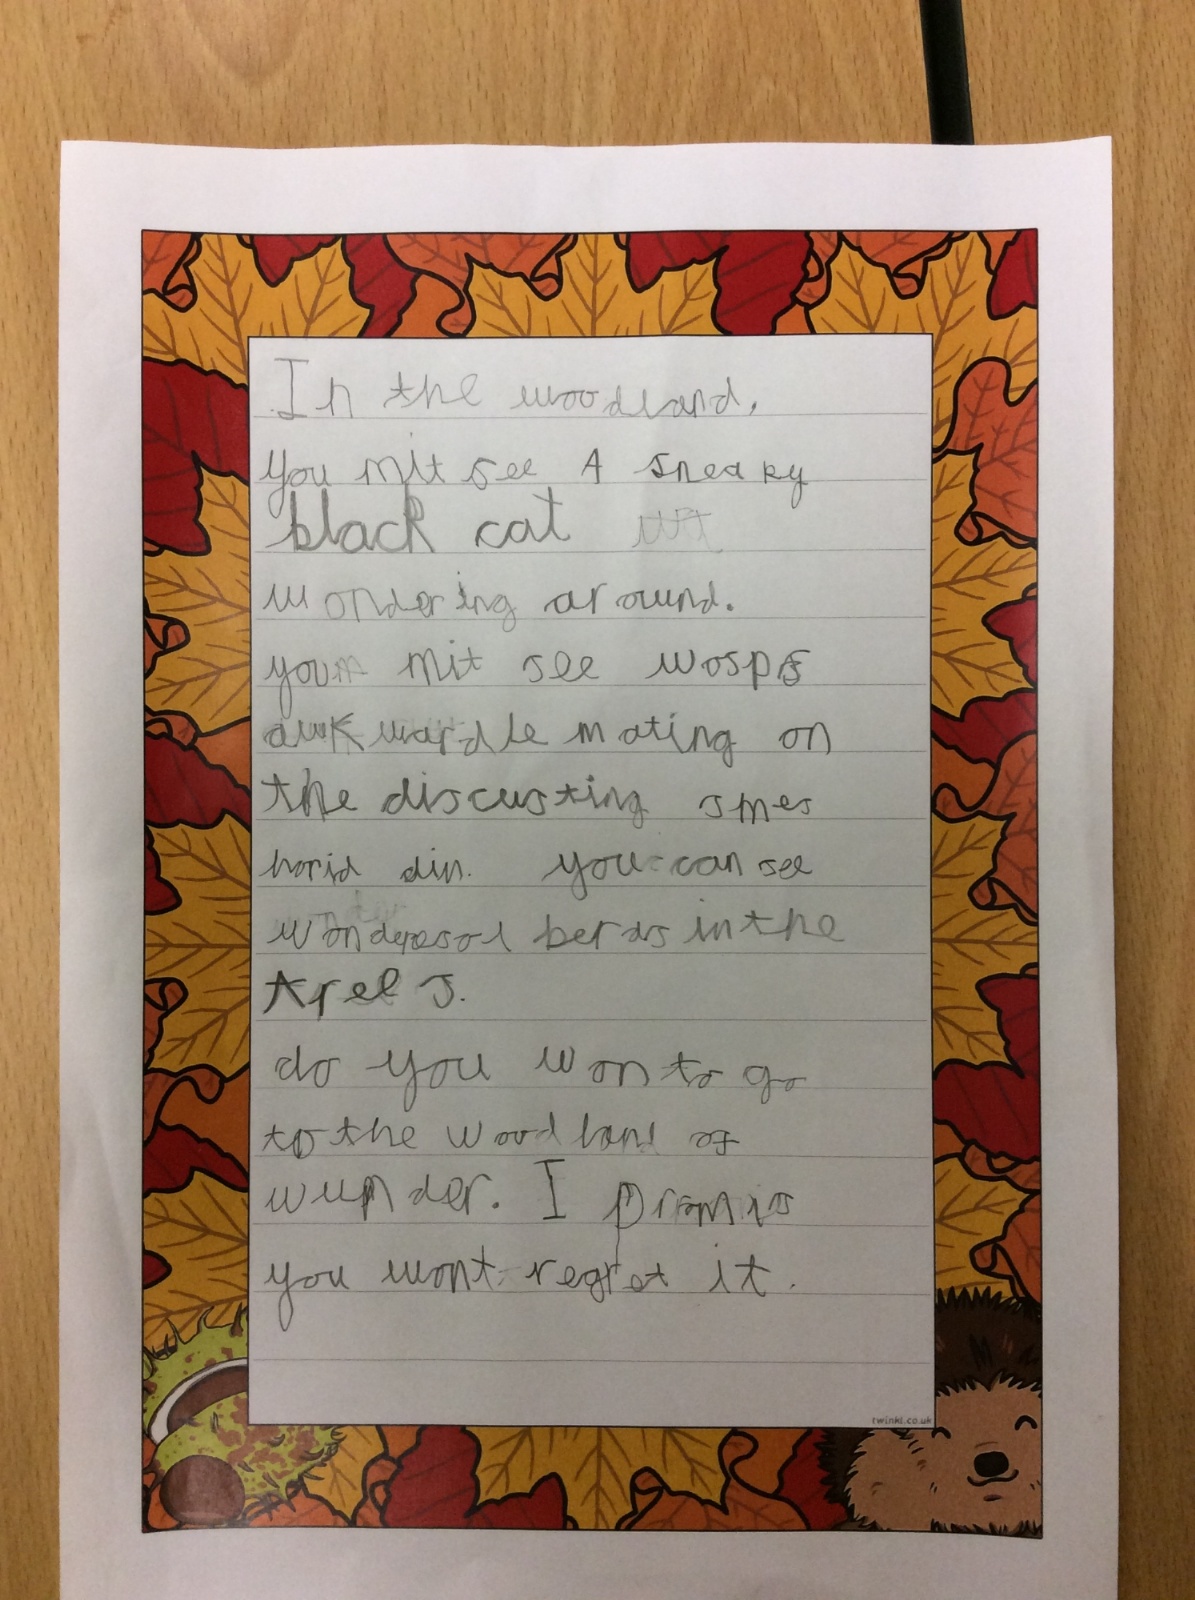 In the woodland,
you mit see A sneaky
black cat
wondering around.
you mit see wosps
awkwardle mating on
the discusting smes
horid din. you can see
wonderfol berds in the
treels.
do you won to go
to the woodland of
wunder. I promis
you wont regret it.
twinkl.co.uk